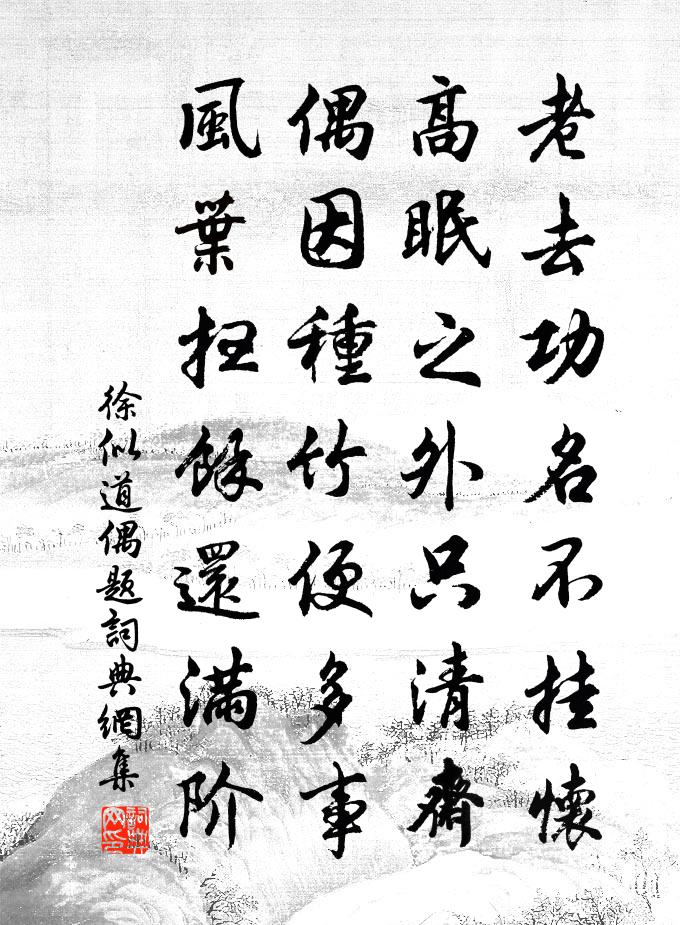 老去功名不挂懷
高眠之外只清齋
偶因種竹便多事
風葉扫餘還滿阶
徐似道偶題詞典網集
詞典网印